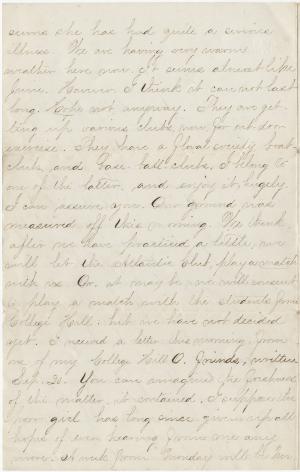 seems she has had quite a serious
illness. We are having very warm
weather here now. It seems almost like
June. However I think it can not last
long. Hope not anyway. They are get-
ting up various clubs, now for out door
exercise. They have a float society, boat
clubs, and base ball clubs, I belong to
one of the latter, and enjoy it hugely
I can assure you. Our ground was
measured off this morning. We think
after we have practiced a little, we
will let the Atlantic Club play a match
with us. Or, it may be we will consent
to play a match with the students from
College Hill. but we have not decided
yet. I received a letter this morning from
one of my College Hill O. friends, written
Sep. 20. You can imagine the freshness
of the matter, it contained. I suppose the
poor girl has long since given up all
hopes of ever hearing from me any
more. A week from Monday will be